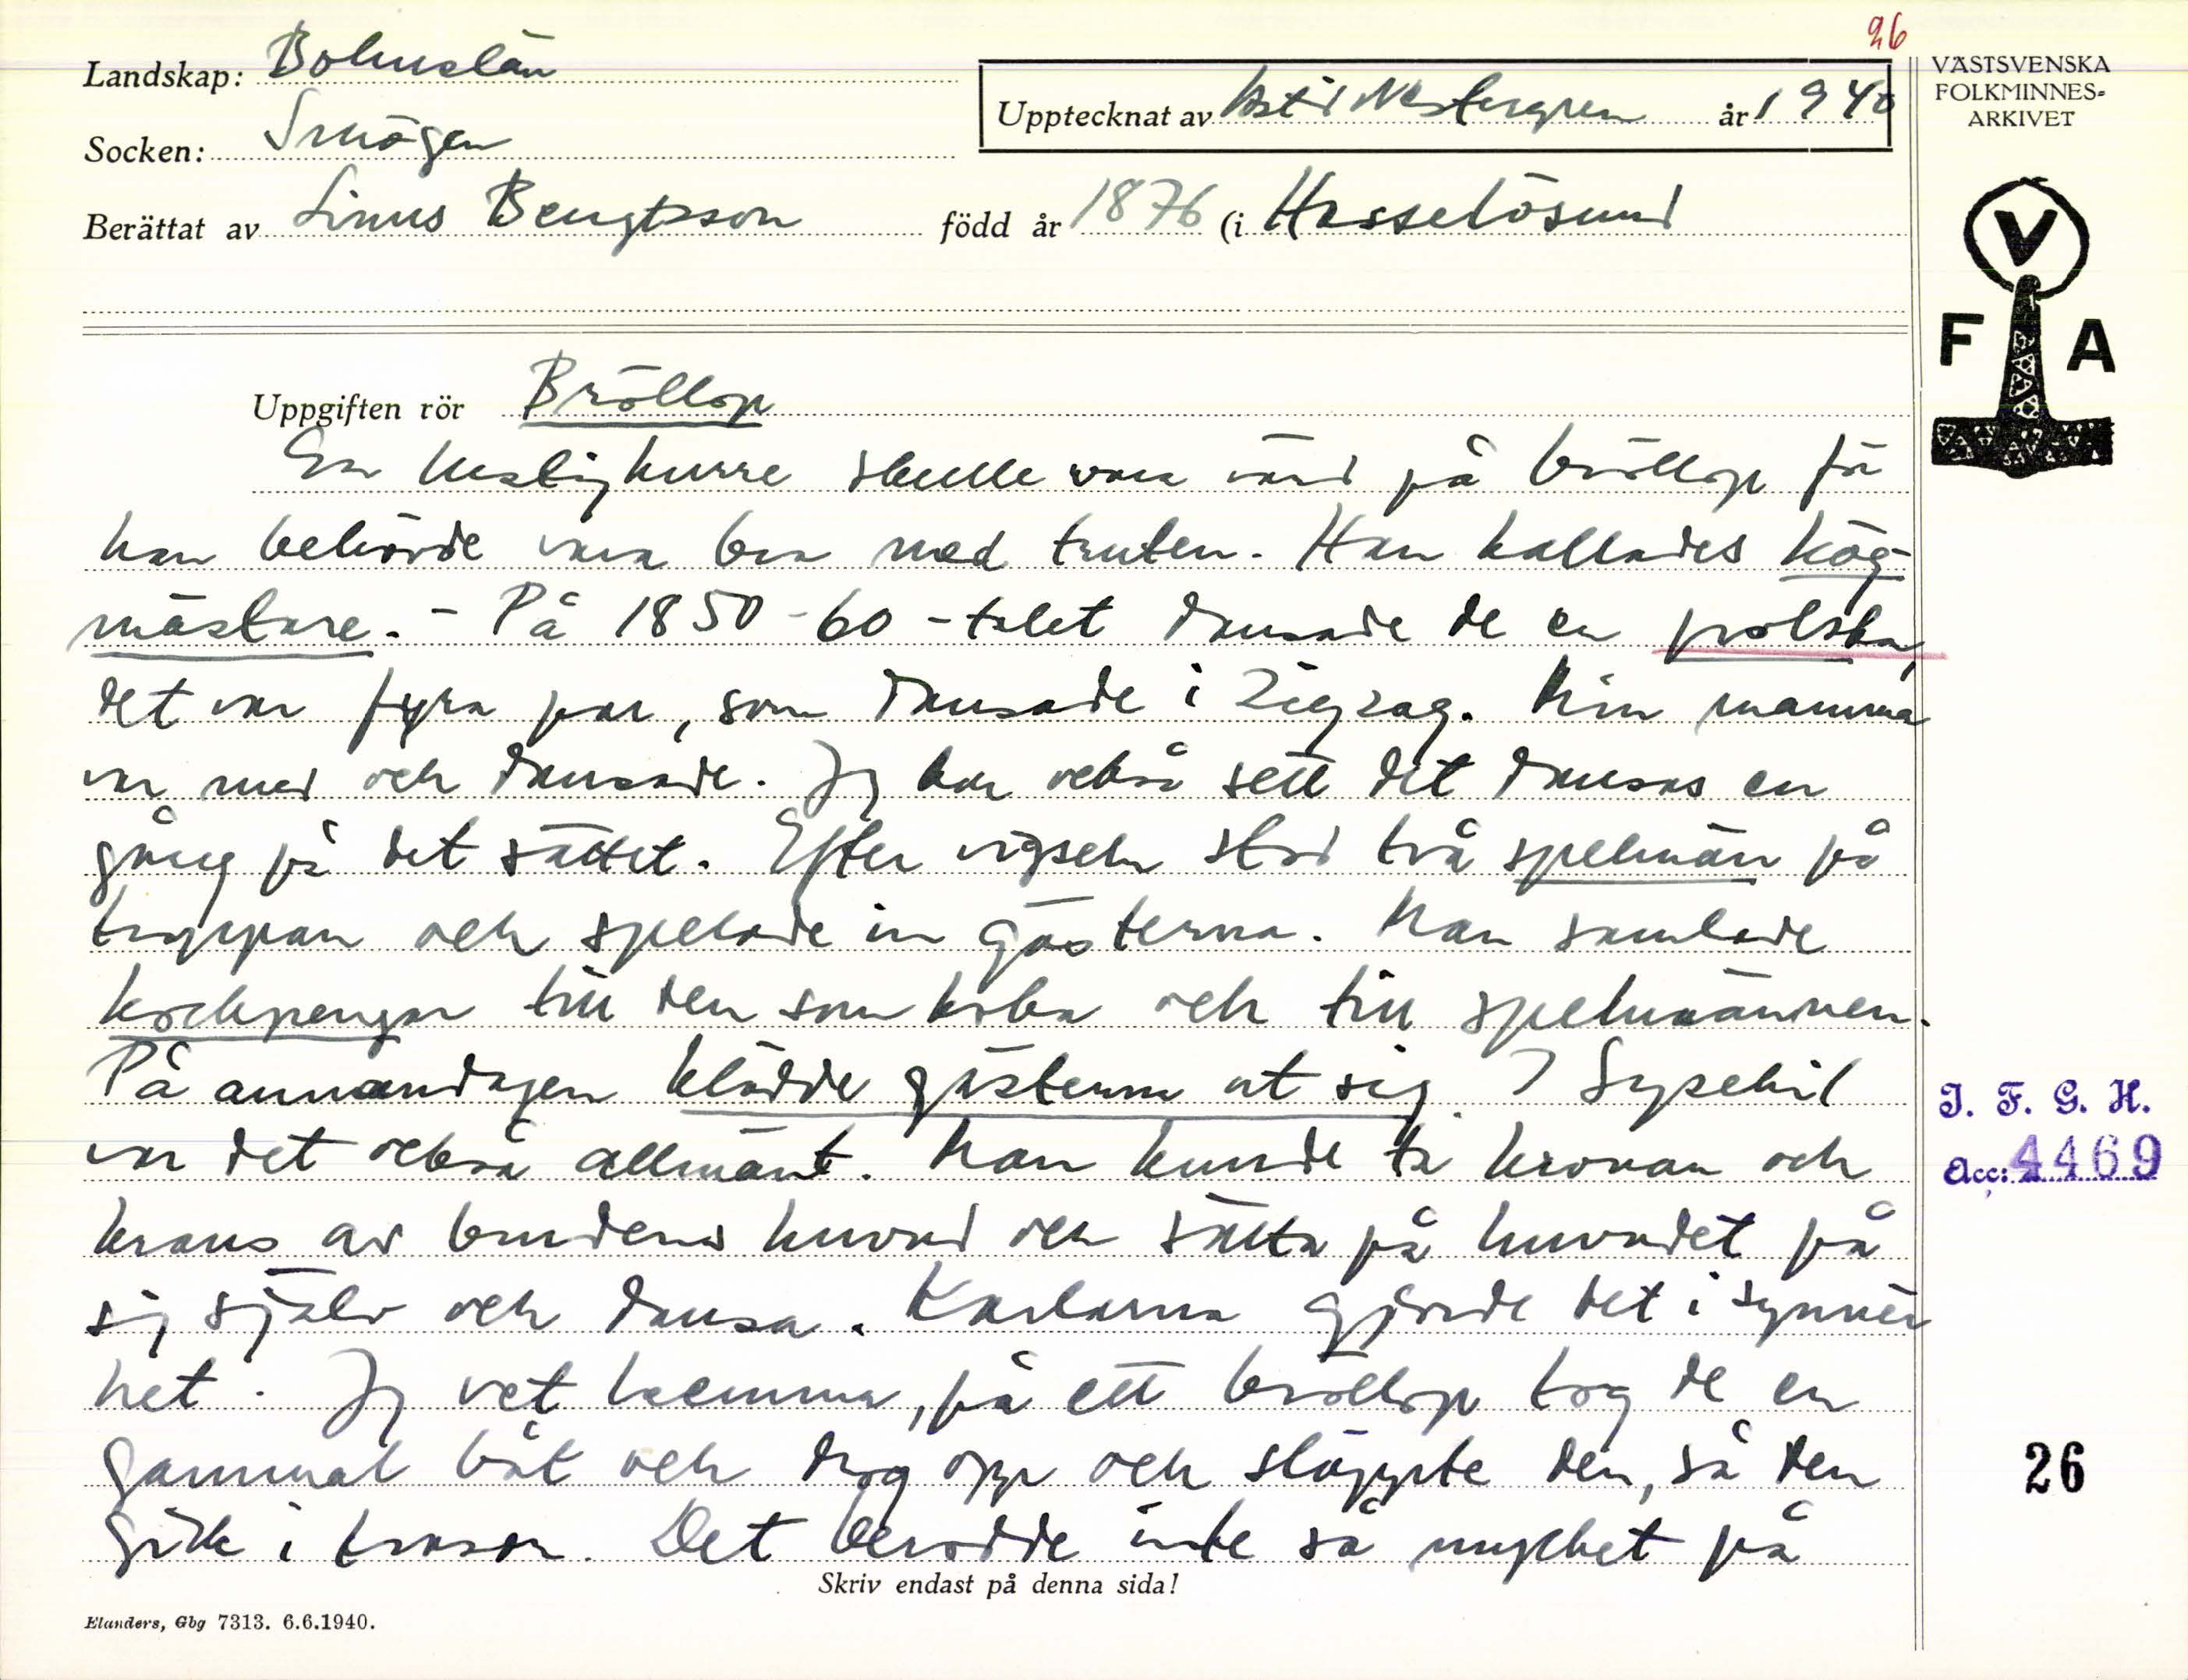 26
Landskap: Bohuslän
Upptecknat av Astrid Westergren år 1940
Socken: Smögen
Berättat av Linus Bengtsson född år 1876 (i Hasselösund
VÄSTSVENSKA
FOLKMINNES-
ARKIVET
V
F A
Uppgiften rör Bröllop
En lustig kurre skulle vara värd på bröllop för
han behövde vara bra med truten. Han kallades kög-
mästare. - På 1850-60-talet dansade de en polska,
det var fyra par, som dansade i zigzag. Min mamma
var med och dansade. Jag har också sett det dansas en
gång på det sättet. Efter vigseln stod två spelmän på
trappan och spelade in gästerna. Man samlade
kockpengar till den som koka och till spelmännen.
På annandagen klädde gästerna ut sig. I Lysekil
var det också allmänt. Man kunde ta kronan och
krans av brudens huvud och sätta på huvudet på
sig själv och dansa. Karlarna gjorde det i synner
het. Jag vet hemma, på ett bröllop tog de en
gammal båt och drog opp och släppte den, så den
gick i trasor. Det berodde inte så mycket på
Skriv endast på denna sida!
Elanders, Gbg 7313. 6.6.1940.
I. F. G. H.
Acc: 4469
26